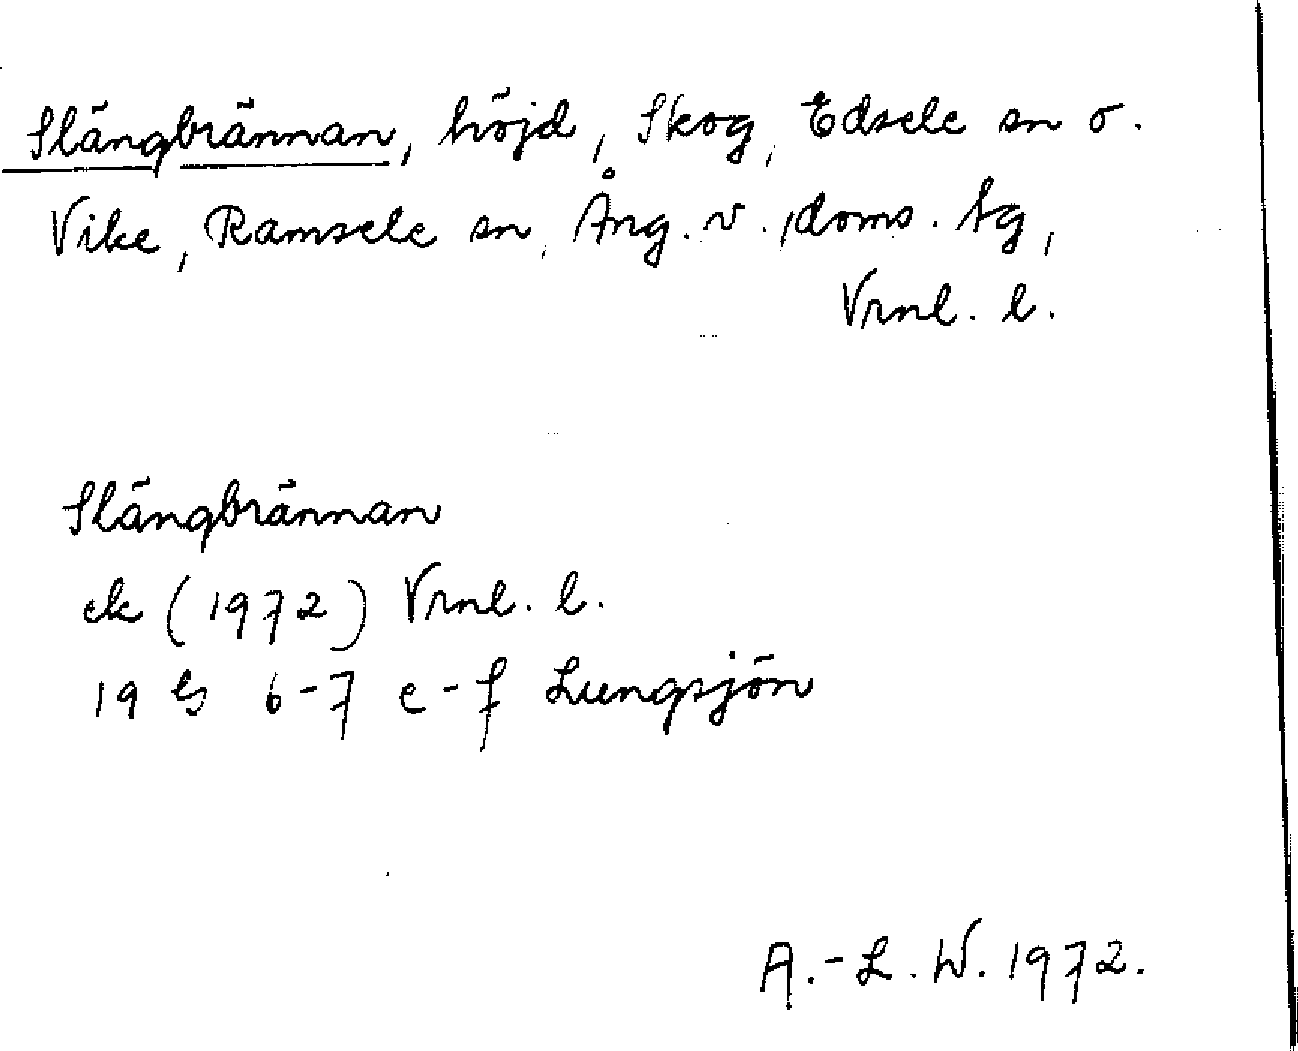 Slängbrännan, höjd, Skog, Edsele sn o.
Vike, Ramsele sn, Ång. v. doms. tg,
Vrnl. l.
Slängbrännan
ek (1972) Vrnl. l.
19 G 6-7 e-f Lungsjön
A.-L. W. 1972.